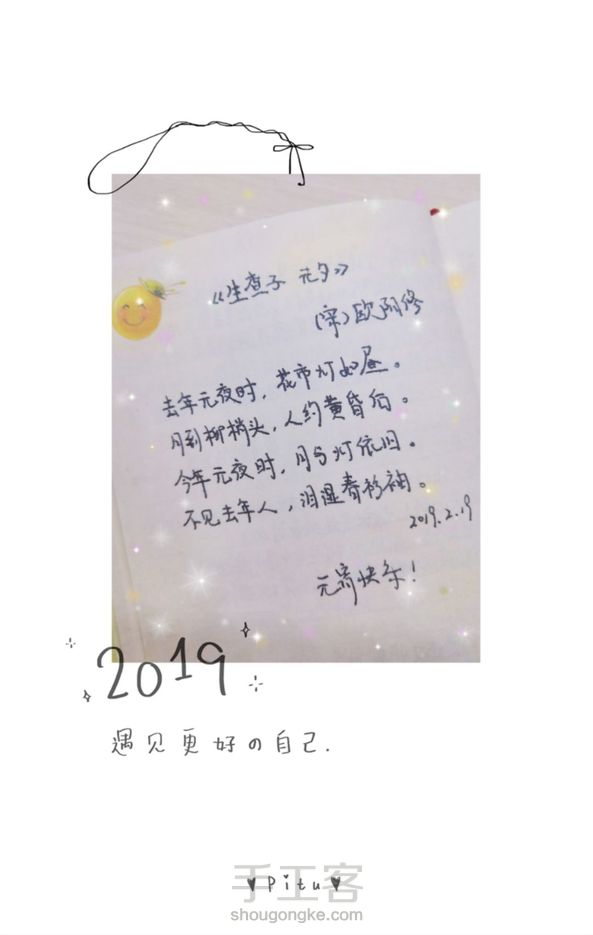 《生查子 元夕》
(宋)欧阳修
去年元夜时，花市灯如昼。
月到柳梢头，人约黄昏后。
今年元夜时，月与灯依旧。
不见去年人，泪湿春衫袖。
2019.2.19
元宵快乐！
2019
遇见更好の自己.
手工客
♥Pitu♥
shougongke.com